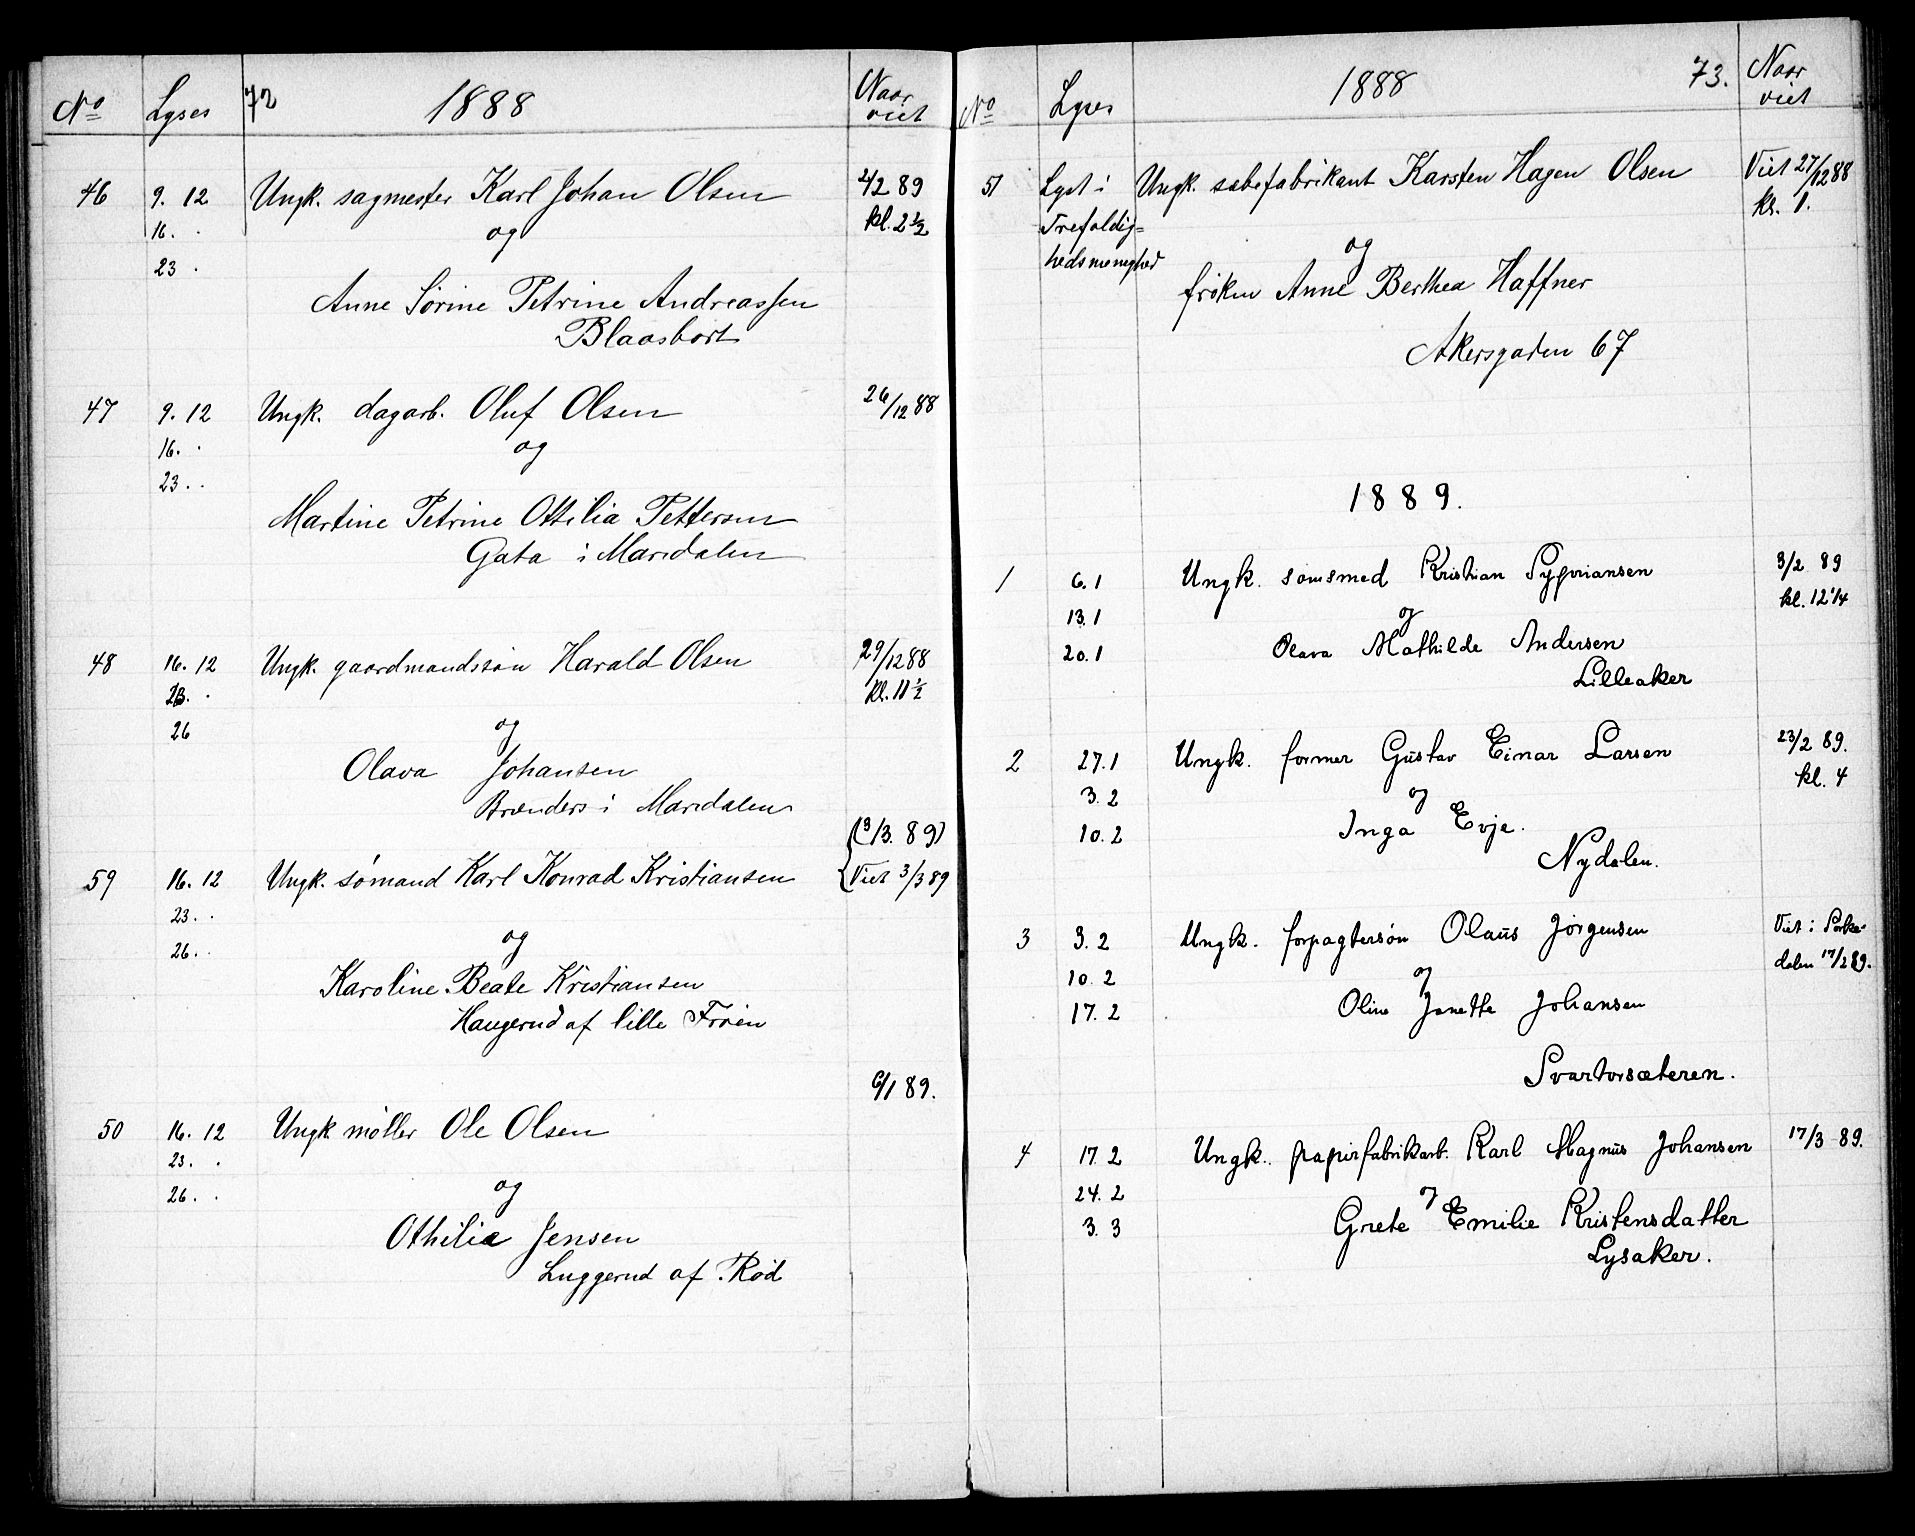 No Lyses 72 1888 Naar viet
46 9. 12 Ungk. sagmester Karl Johan Olsen 4/2 89
16. . og kl. 2 1/2
23 .
Anne Sørine Petrine Andreassen
Blaasbort
47 9. 12 Ungk. dagarb. Oluf Olsen 26/12 88
16. . og
23. .
Martine Petrine Ottilia Pettersen
Gata i Maridalen
48 16. 12 Ungk. gaardmandssøn Harald Olsen 29/12 88
23. . kl. 11 1/2
26 og
Olava Johansen
Brænders i Maridalen
(3/3. 89)
59 16. 12 Ungk. sømand Karl Konrad Kristiansen Viet 3/3 89
23. .
26. . og
Karoline Beate Kristiansen
Haugerud af lille Frøen
6/1 89.
50 16. 12 Ungk møller Ole Olsen
23. .
26. . og
Othilie Jensen
Luggerud af Rød
No Lyses 1888 73. Naar viet
51 Lyst i Ungk. sæbefabrikant Karsten Hagen Olsen Viet 27/12 88
Trefoldig= kl. 1.
hedsmenighed og
frøken Anne Berthea Haffner
Akersgaden 67
1889.
1 6. 1 Ungk. sømsmed Kristian Sypriansen 3/2 89
13. 1 og kl. 12 1/4
20. 1 Olava Mathilde Andersen
Lilleaker
2 27. 1 Ungk. former Gustav Einar Larsen 23/2 89.
3. 2 og kl. 4
10. 2 Inga Evje.
Nydalen.
3 3. 2 Ungk. forpagtersøn Olaus Jørgensen Viet i Sørke-
10. 2 og dalen 17/2 89.
17. 2 Oline Janette Johansen
Svartorsæteren.
4 17. 2 Ungk. papirfabrikarb. Karl Magnus Johansen 17/3 89.
24. 2 og
3. 3 Grete Emilie Kristensdatter
Lysaker.